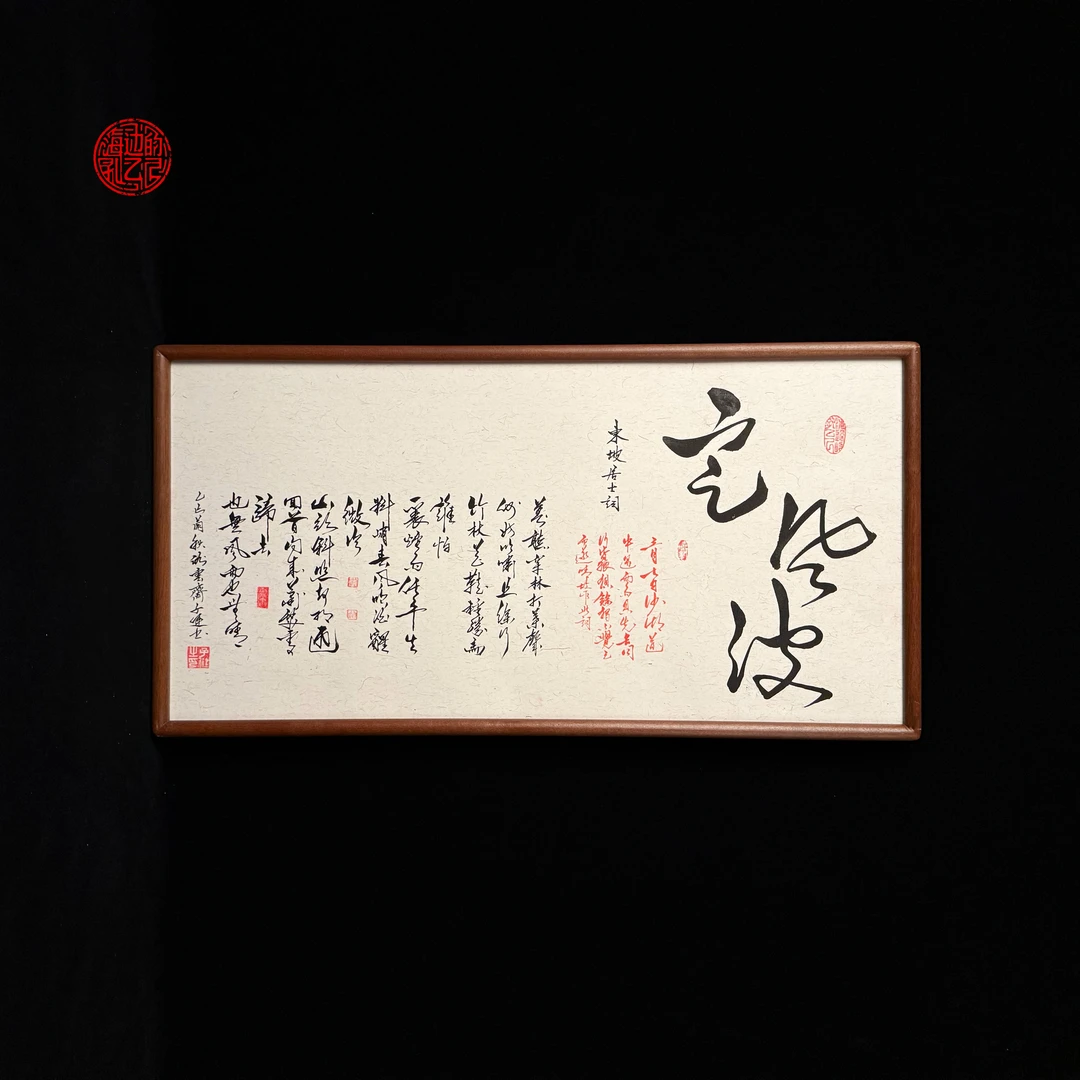 定
风波
東坡居士詞
三月七日沙湖道
中遇雨雨具先去同
行皆狼狽餘獨不覺已
而遂晴故作此詞
莫聽穿林打葉聲
何妨吟嘯且徐行
竹杖芒鞋輕勝馬
誰怕
一蓑煙雨任平生
料峭春風吹酒醒
微冷
山頭斜照却相迎
回首向來蕭瑟處
歸去
也無風雨也無晴
乙巳蘭秋書齋書